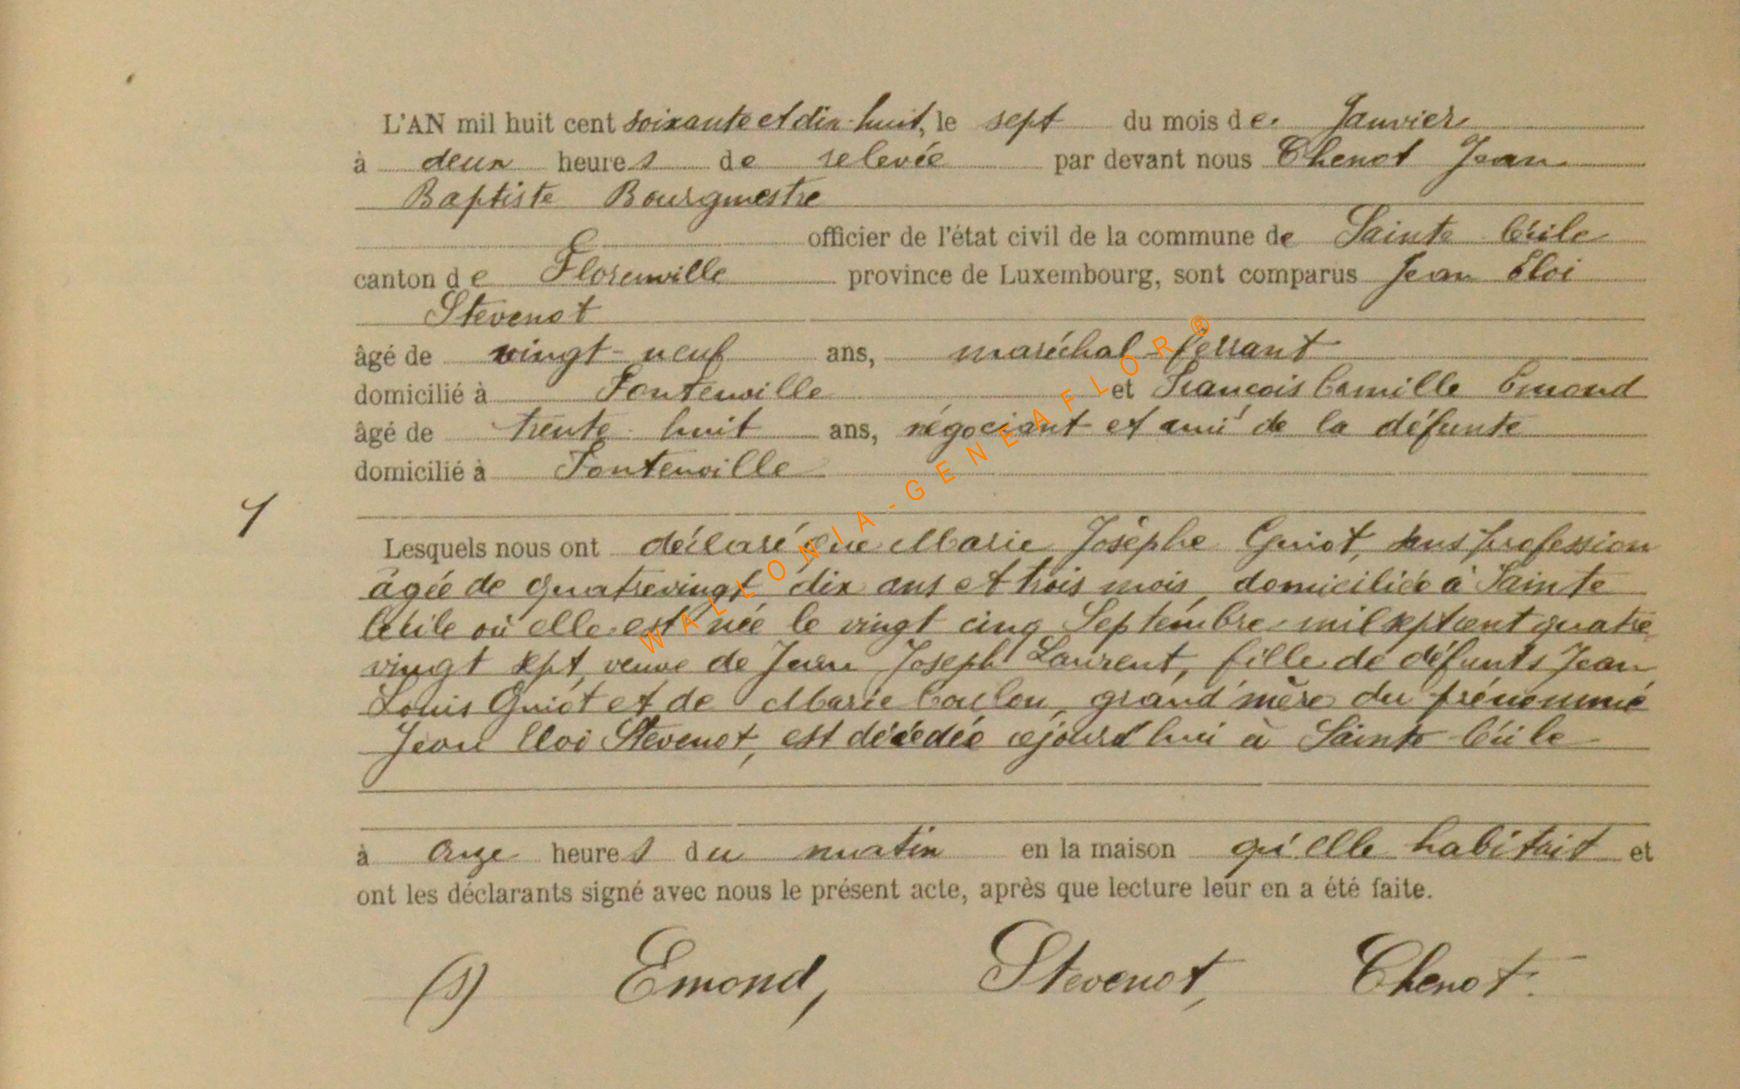 L'AN mil huit cent soixante et dix-huit, le sept du mois de Janvier
à deux heures de relevée par devant nous Chenot Jean
Baptiste Bourgmestre
officier de l'état civil de la commune de Sainte Cécile
canton de Florenville province de Luxembourg, sont comparus Jean Eloi
Stevenot
âgé de vingt-neuf ans, maréchal-ferrant
domicilié à Fontenoille et François Camille Emond
âgé de trente-huit ans, négociant et ami de la défunte
domicilié à Fontenoille
1
Lesquels nous ont déclaré que Marie Josèphe Guiot, sans profession
âgée de quatrevingt dix ans et trois mois, domiciliée à Sainte
Cécile où elle est née le vingt cinq Septembre mil sept cent quatre
vingt sept, veuve de Jean Joseph Laurent, fille de défunts Jean
Louis Guiot et de Marie grand'mère du prénommé
Jean Eloi Stevenot, est décédée cejourd'hui à Sainte Cécile
à onze heures du matin en la maison qu'elle habitait et
ont les déclarants signé avec nous le présent acte, après que lecture leur en a été faite.
(s) Emond, Stevenot, Chenot.
WALLONIA-GENEAFLOR®